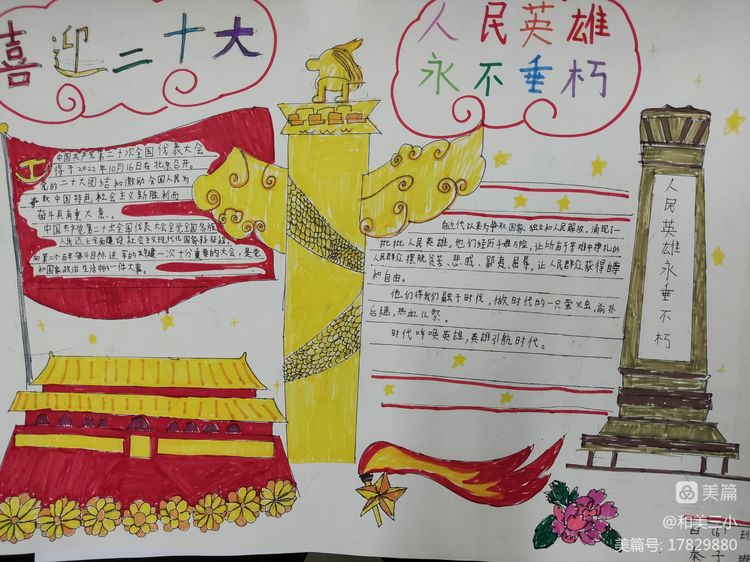 喜迎二十大
人民英雄
永不垂朽
中国共产党第二十次全国代表大会
将于2022年10月16日在北京召开。
党的二十大团结和激励全国人民为
争取中国特色社会主义新胜利而
奋斗具有重大意。
中国共产党第二十大全国代表大会
人民迈上全面建设社会主义现代化国家新征程,
向第二个百年奋斗目标进军的
一次十分重要的大会,是党
和国家政治生活中的一件大喜。
自近代以来为争取国家独立和人民解放,涌现了一
批批人民英雄。他们经历千难万险,让所有于苦难中挣扎的
人民群众摆脱贫苦、悲戚、
屈辱,让人民群众获得
和自由。
他们将我们融于时代,做时代的一只萤火虫,前扑
后继,热血以祭。
时代呼唤英雄,英雄引航时代。
人民英雄永垂不朽
美篇
@和美三小
美篇号: 17829880
班